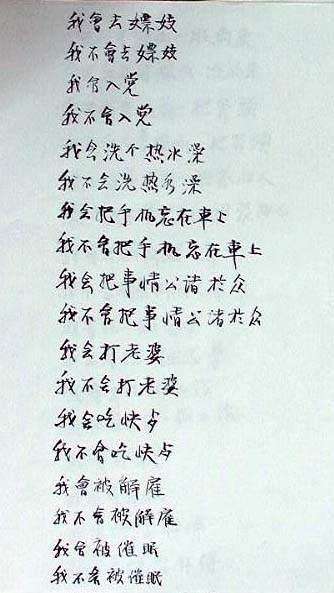 我會去嫖妓
我不會去嫖妓
我會入党
我不會入党
我会洗个热水澡
我不会洗热水澡
我会把手机忘在車上
我不會把手机忘在車上
我会把事情公诸於众
我不會把事情公诸於众
我会打老婆
我不会打老婆
我会吃快歺
我不會吃快歺
我會被解雇
我不會被解雇
我會被催眠
我不會被催眠